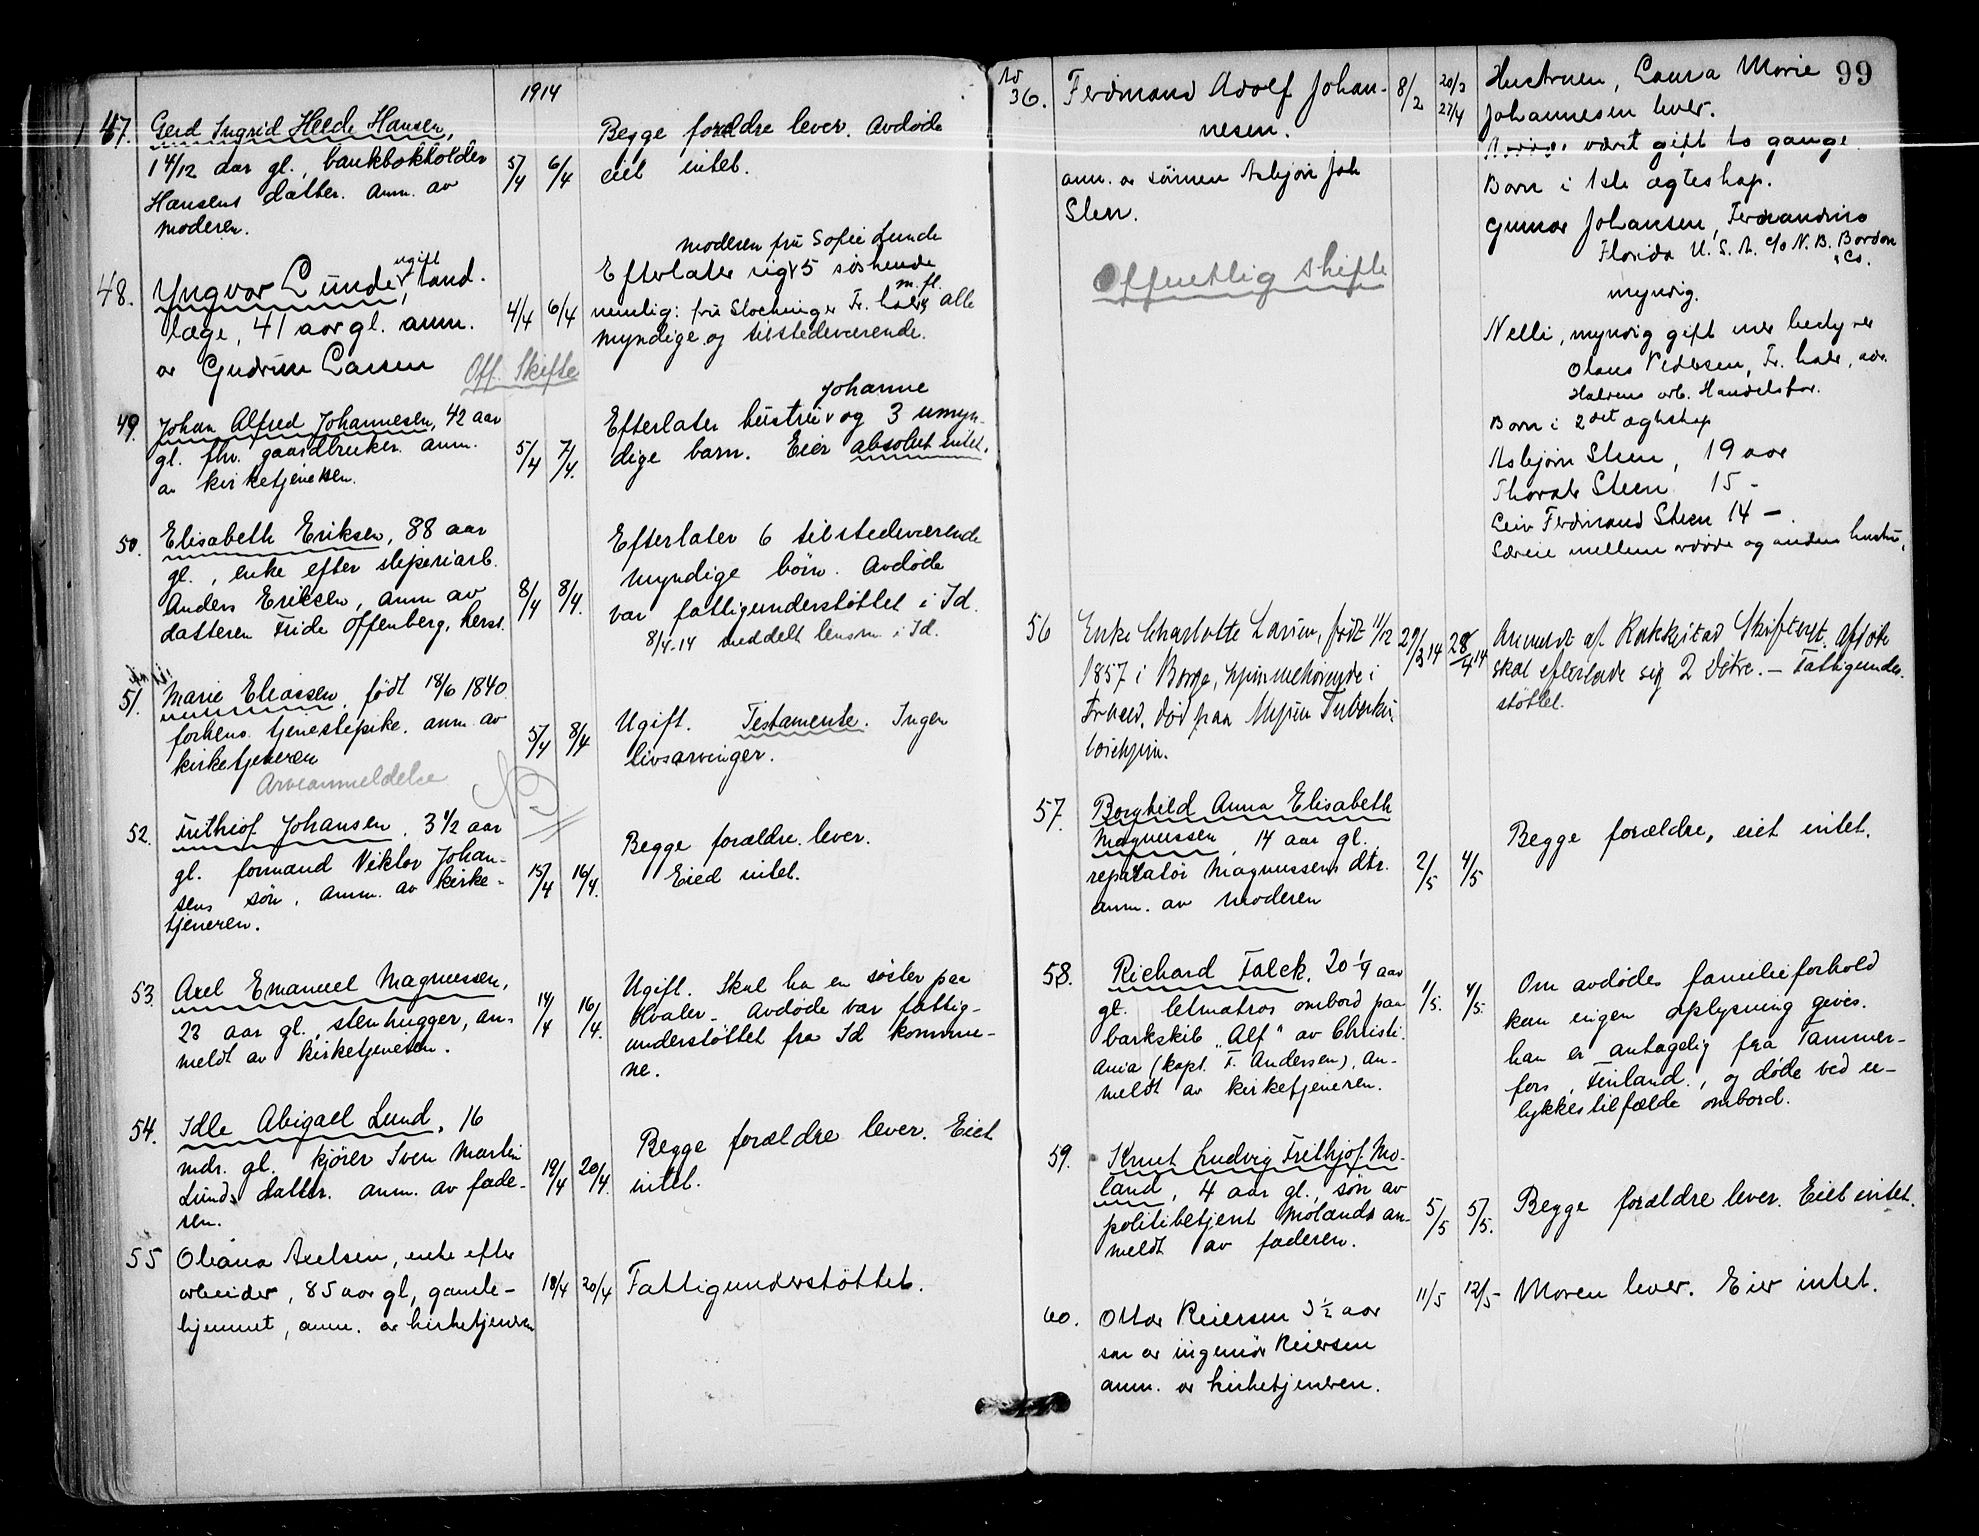 1914
47. Gerd Ingrid Heede Hansen,
1 4/12 aar gl., bankbokholder
Hansens datter. Anm. av
moderen.
5/4 6/4
Begge forældre lever. Avdøde
eiet intet.
48. Yngvar Lunde, ugift, tand-
læge, 41 aar gl. anm.
av Gudrun Larsen
Off. Skifte
4/4 6/4
moderen fru Sofie Lunde
Efterlater sig 5 søskende
nemlig: fru Stochinger Fr.hald m. fl. alle
myndige og tilstedeværende.
49. Johan Alfred Johannesen, 42 aar
gl. fhv. gaardbruker. anm.
av kirketjeneren.
5/4 7/4.
Johanne
Efterlater hustru og 3 umyn-
dige barn. Eier absolut intet.
50. Elisabeth Eriksen, 88 aar
gl., enke efter sliperiarb.
Anders Eriksen, anm av
datteren Fride Offenberg, herst.
8/4 8/4.
Efterlater 6 tilstedeværende
myndige børn. Avdøde
var fattigunderstøttet i Id.
8/4-14 meddelt lensm. i Id.
51. Marie Eliassen, født 18/6 1840
forhens tjenestepike. anm av
kirketjeneren
Arveanmeldelse
NB
5/4 8/4
Ugift. Testamente. Ingen
livsarvinger.
52. Frithiof Johansen, 3 1/2 aar
gl. formand Viktor Johan-
sens søn. anm. av kirke-
tjeneren.
15/4 16/4.
Begge forældre lever.
Eied intet.
53. Axel Emanuel Magnussen,
23 aar gl., stenhugger, an-
meldt av kirketjeneren.
14/4 16/4.
Ugift. Skal ha en søster paa
Hvaler. Avdøde var fattig-
understøttet fra Id kommu-
ne.
54. Idle Abigael Lund, 16
mdr. gl. kjører Sven Martin
Lunds datter. anm. av fade-
ren.
19/4 20/4.
Begge forældre lever. Eiet
intet.
55 Oliana Axelsen, enke efter
arbeider, 85 aar gl, gamle-
hjemmet, anm. av kirketjeneren
18/4 20/4
Fattigunderstøttet.
99
36. Ferdinand Adolf Johan-
nesen.
anm. av sønnen Asbjørn Joh
Steen.
Offentlig skifte
8/2 20/3
27/4
Hustruen, Laura Marie
Johannesen lever.
været gift to gange.
Barn i 1ste ægteskap.
Gunnar Johansen, Fernandina
Florida U. S. A. c/o N. B. Bordon
& Co.
myndig.
Nelli, myndig gift med bestyrer
Olaus Pedersen, Fr.hald, adr.
Haldens arb. Handelsfor.
Barn i 2det egteskap
Asbjørn Steen, 19 aar
Thorvald Steen 15 -
Leiv Ferdinand Steen 14 -.
Særeie mellem avdøde og anden hustru.
56 Enke Charlotte Larsen, født 11/12
1857 i Borge, hjemmehørende i
Fr.hald, død paa Mysen Tuberku-
losehjem.
29/3 14 28/4 14
Anmeldt af Rakkestad Skifteret. Afdøde
skal efterlade sig 2 døtre. - Fattigunder-
støttet.
57. Borghild Anna Elisabeth
Magnussen, 14 aar gl.
reparatør Magnussens dtr.
anm. av moderen
2/5 4/5
Begge forældre, eiet intet.
58. Richard Falck, 20 1/4 aar
gl. letmatros ombord paa
barkskib "Alf" av Christi-
ania (kapt. F. Andersen), an-
meldt av kirketjeneren.
1/5. 4/5.
Om avdødes familieforhold
kan ingen oplysning gives.
han er antagelig fra Tammer-
fors, Finland., og døde ved u-
lykkestilfælde ombord.
59. Knut Ludvig Frithjof Mo-
land, 4 aar gl., søn av
politibetjent Molands an-
meldt av faderen.
5/5 5/5.
Begge forældre lever. Eiet intet.
60. Ottar Reiersen 3 1/2 aar
søn av ingeniør Reiersen
anm. av kirketjeneren.
11/5 12/5
Moren lever. Eier intet.